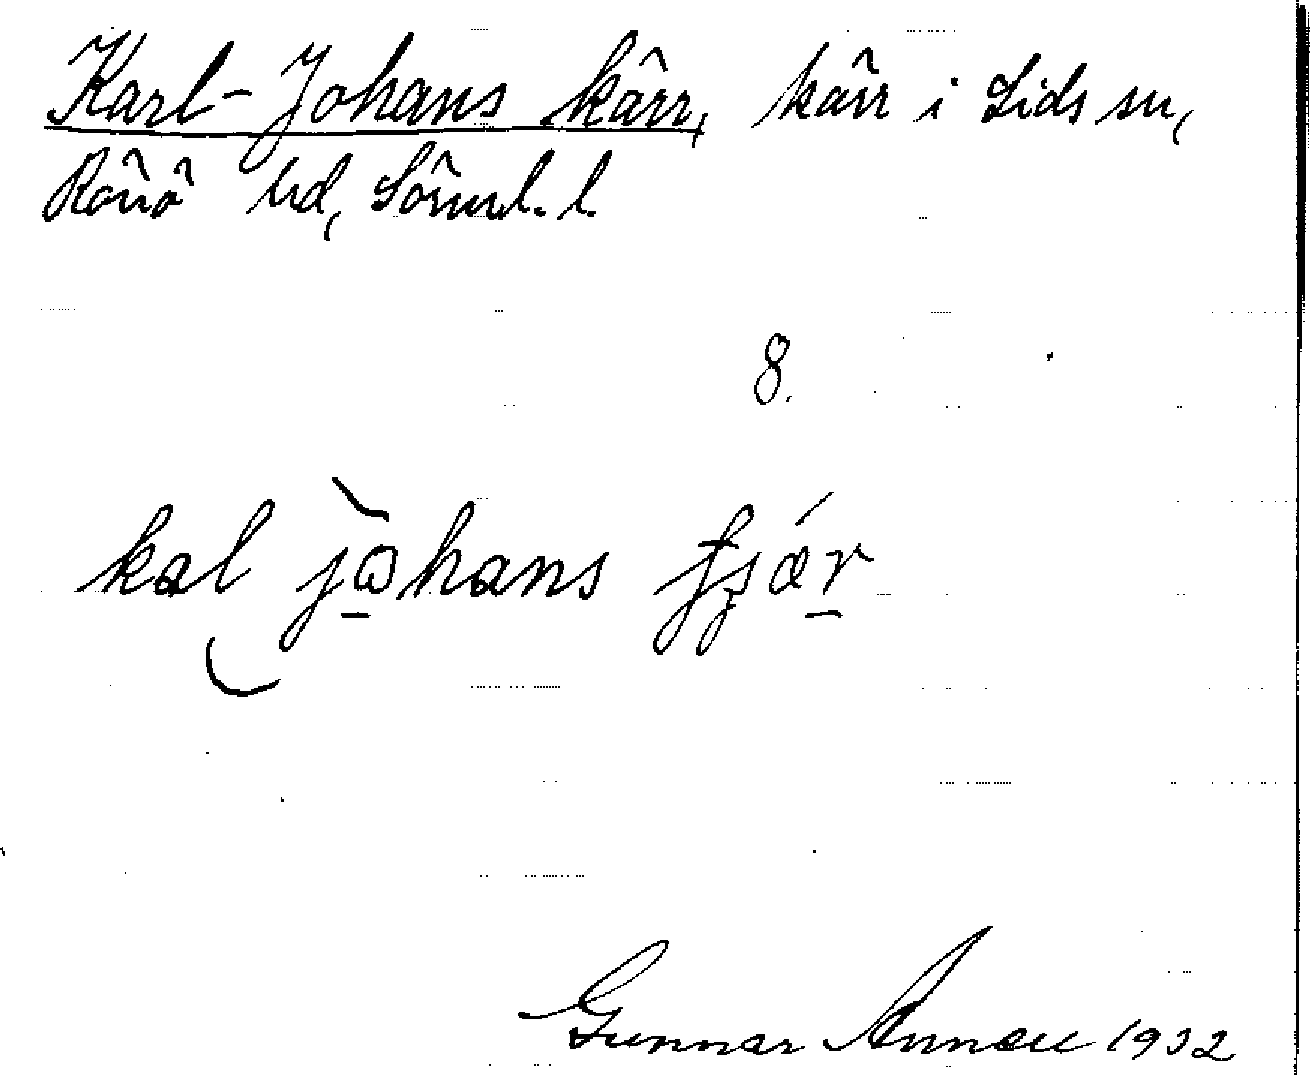 Karl-Johans kärr, kärr i Lids sn,
Rönö hd, Sörml. l.
8.
kal johans
Gunnar Annell 1932